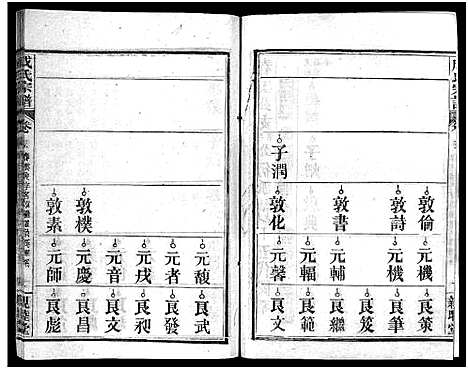 子潤
敦倫
敦詩
敦書
敦化
元機
元機
元輔
元輻
元馨
良策
良筆
良笈
良繼
良範
良文
成氏宗譜
卷
敦樸
敦素
元馥
元者
元戌
元音
元慶
元師
良武
良發
良昶
良文
良昌
良彪